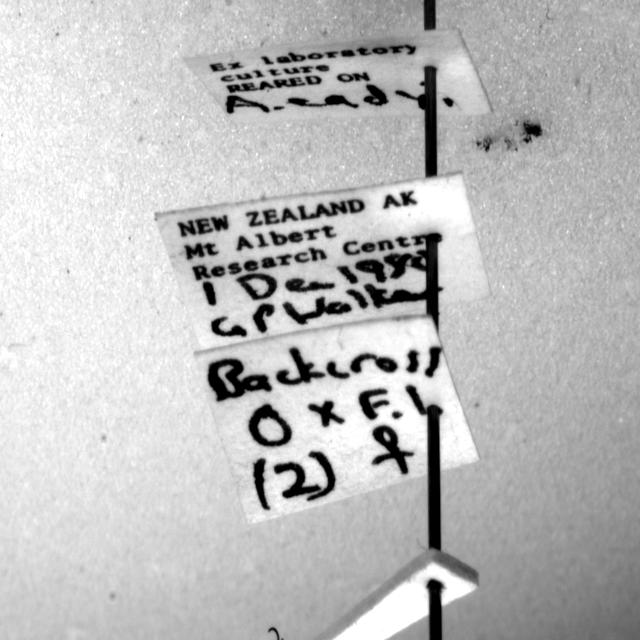 Ex laboratory
culture
REARED ON
NEW ZEALAND AK
Mt Albert
Research Centr
1 Dec 1980
GPWalker
Backcross
O x F.1
(2) ♀